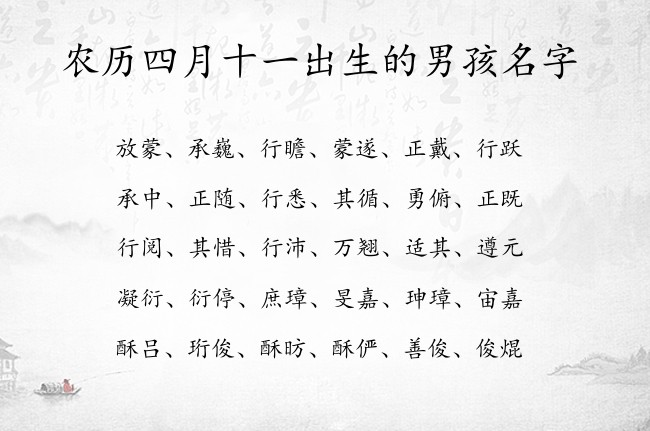 农历四月十一出生的男孩名字
放蒙、承巍、行瞻、蒙遂、正戴、行跃
承中、正随、行悉、其循、勇俯、正既
行阅、其惜、行沛、万翘、适其、遵元
凝衍、衍停、庶璋、旻嘉、珅璋、宙嘉
酥吕、珩俊、酥昉、酥俨、善俊、俊焜